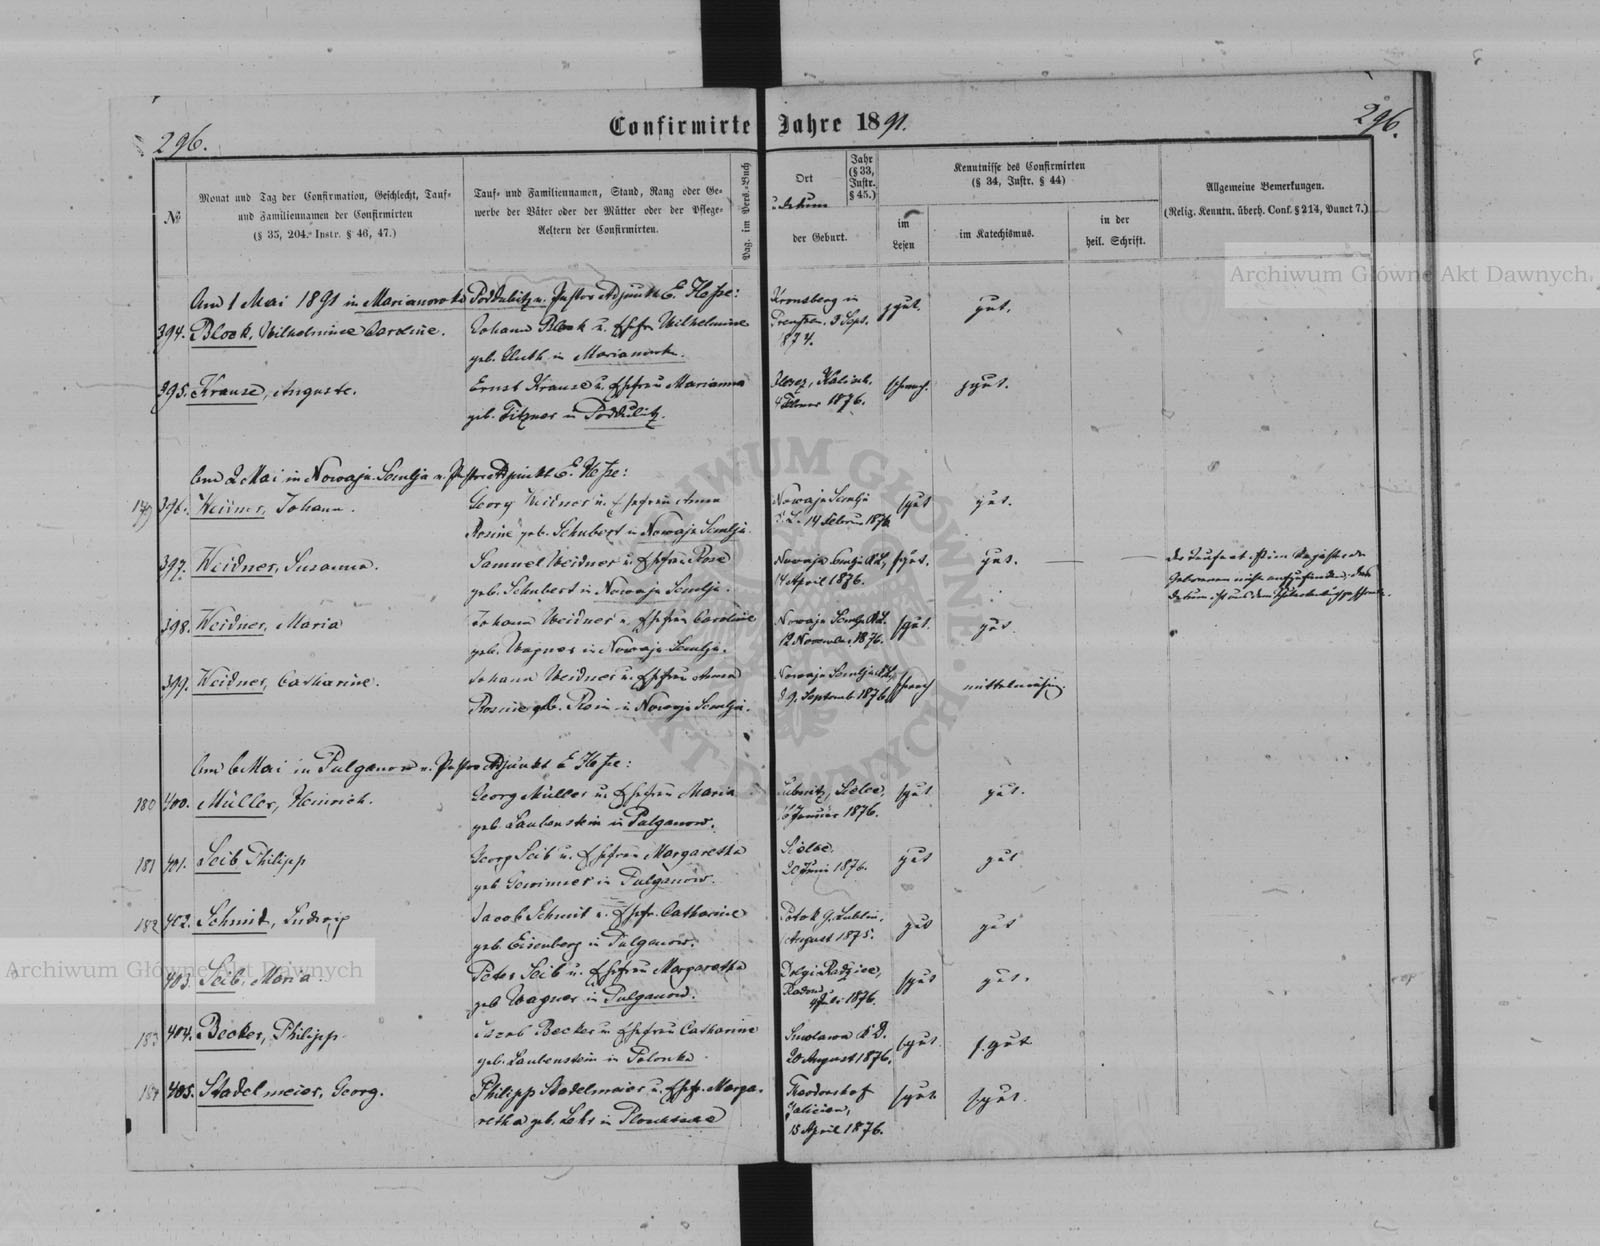 296.
Confirmirte Jahre 1891.
296.
№
Monat und Tag der Confirmation, Geschlecht, Tauf-
und Familiennamen der Confirmirten
(§ 35, 204. Instr. § 46, 47.)
Tauf- und Familiennamen, Stand, Rang oder Ge-
werbe der Väter oder der Mütter oder der Pflege-
Aeltern der Confirmirten.
Pag. im Pers.-Buch
Ort
u. Datum
der Geburt.
Jahr
(§ 33,
Instr.
§ 45.)
Kenntnisse des Confirmirten
(§ 34, Instr. § 44)
im
Lesen
im Katechismus.
in der
heil. Schrift.
Allgemeine Bemerkungen.
(Relig. Kenntn. überh. Conf. § 214, Punct 7.)
Am 1 Mai 1891 in Marianowka Poddubitz v. Pastor Adjunkt E. Hesse:
394. Block, Wilhelmine Caroline.
Johann Block u. Ehefr. Wilhelmine
geb. Gluth in Marianowka.
Kronsberg in
Preussen, 3 Sept.
1874.
sgut.
gut.
395. Krause, Auguste.
Ernst Krause u. Ehefrau Marianna
geb. Fitzner in Poddubitz.
Kalisch,
4 Februar 1876.
schwach.
sgut.
Am 2 Mai in Nowaja-Semlja v. Pastor Adjunkt E. Hesse:
179
396. Weidner, Johann.
Georg Weidner u. Ehefrau Anna
Rosine geb. Schubert in Nowaja Semlja.
Nowaja Semlja
14 Februar 1876
sgut
gut.
397. Weidner, Susanna.
Samuel Weidner u. Ehefrau Rosa
geb. Schubert in Nowaja Semlja.
Nowaja Semlja
14 April 1876.
sgut.
gut.
398. Weidner, Maria
Johann Weidner u. Ehefrau Caroline
geb. Wagner in Nowaja Semlja.
Nowaja Semlja
12 November 1876.
sgut.
gut.
399. Weidner, Catharine.
Johann Weidner u. Ehefrau Anna
Rosine geb. Rein in Nowaja Semlja.
Nowaja Semlja
9. Septemb 1876
schwach
mittelmässig.
Am 6 Mai in Pulganow v. Pastor Adjunkt E Hesse:
180
400. Müller, Heinrich.
Georg Müller u. Ehefrau Maria
geb. Laubenstein in Pulganow.
Sielce,
6 Januar 1876.
sgut
gut.
181
401. Seib Philipp
Georg Seib u. Ehefrau Margaretha
geb. Gewinner in Pulganow.
Sielce
20 Juni 1876.
gut
gut
182
402. Schmit, Ludwig
Jacob Schmit u. Ehefr. Catharine
geb. Eisenberg in Pulganow.
Potok G. Lublin,
August 1875.
gut
gut
403. Seib, Maria.
Peter Seib u. Ehefrau Margaretha
geb Wagner in Pulganow.
Radom,
Juli 1876.
sgut
gut.
183
404. Becker, Philipp
Jacob Becker u. Ehefrau Catharine
geb. Laubenstein in Polonka.
20 August 1876.
sgut.
s.gut
184
405. Stadelmeier, Georg.
Philipp Stadelmeier u. Ehefr. Marga-
retha geb. Lehr in
Theodorshof
Galizien,
15 April 1876.
sgut
s.gut.
Archiwum Główne Akt Dawnych
Archiwum Główne Akt Dawnych
ARCHIWUM GŁÓWNE AKT DAWNYCH